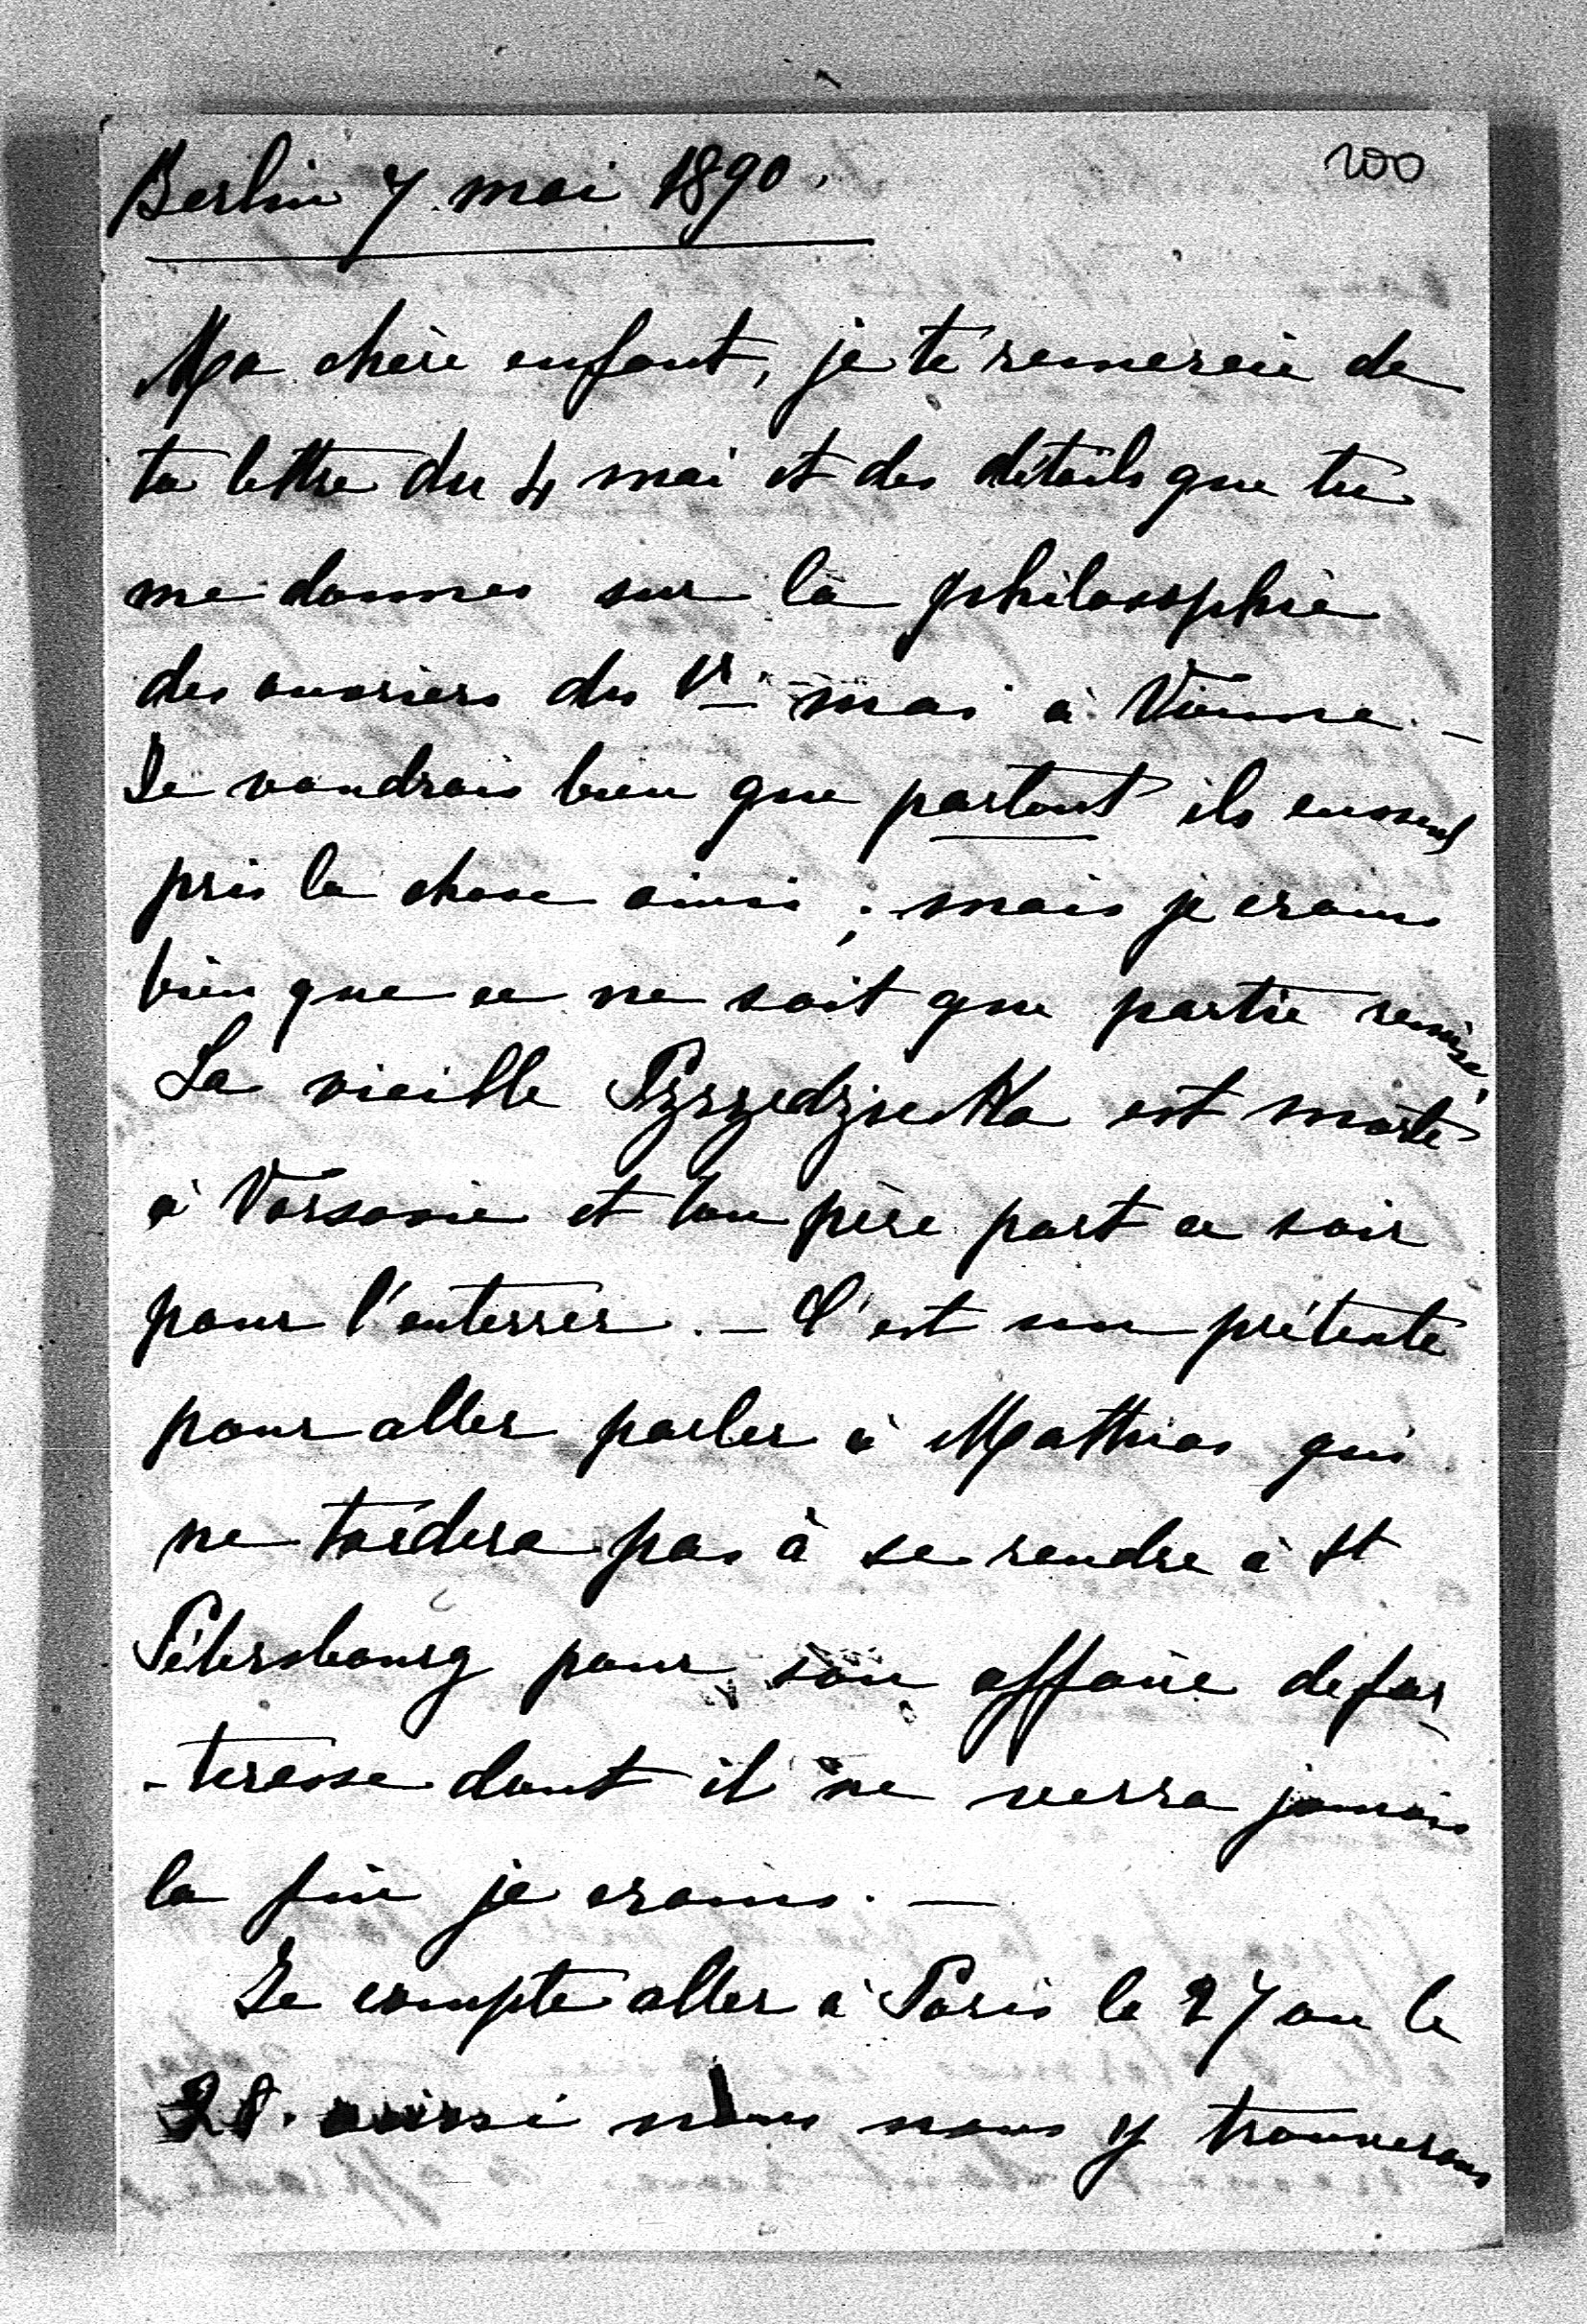 200
Berlin 7 mai 1890.
Ma chère enfant, je te remercie de
ta lettre du 4 mai et des détails que tu
me donnes sur la philosophie
des ouvriers du 1r mai à Vienne. –
Je voudrais bien que partout ils eussent
pris la chose ainsi ; mais je crains
bien que ce ne soit que partie remise.
La vieille est morte
à Varsovie et ton père part ce soir
pour l'enterrer. – C'est un prétexte
pour aller parler à Mathias qui
ne tardera pas à se rendre à St
Pétersbourg pour son affaire de for
-teresse dont il ne verra jamais
la fin je crains. –
Je compte aller à Paris le 27 ou le
28. ainsi nous nous y trouverons